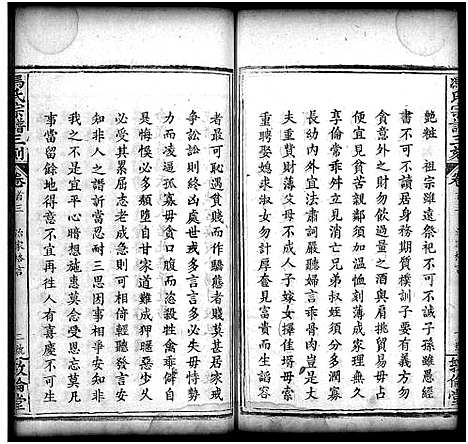 馮氏宗譜三刻
飽粧 祖宗雖遠祭祀不可不誠子孫雖愚經
書不可不讀居身務期質樸訓子要有義方勿
貪意外之財勿飲過量之酒與肩挑貿易勿佔
便宜見貧苦親鄰須加溫恤刻薄成家理無久
享倫常乖舛立見消亡兄弟叔姪須多分潤寡
長幼內外宜法肅詞嚴聽婦言乖骨肉豈是丈
夫重貲財薄父母不成人子嫁女擇佳壻毋索
重聘娶媳求淑女勿計厚奩見富貴而生諂容
敦倫堂
馮氏宗譜三刻
卷首三 治家格言
者最可恥遇貧賤而作驕態者賤莫甚居家戒
爭訟訟則終凶處世戒多言言多必失毋恃勢
力而凌逼孤寡毋貪口腹而恣殺牲禽乖僻自
是悔悞必多頹墮自甘家道難成狎暱惡少久
必受其累屈志老成急則可相倚輕聽發言安
知非人之譖訴當忍耐三思因事相爭安知非
我之不是宜平心暗想施恩莫念受恩莫忘凡
事當留餘地得意不宜再往人有喜慶不可生
敦倫堂